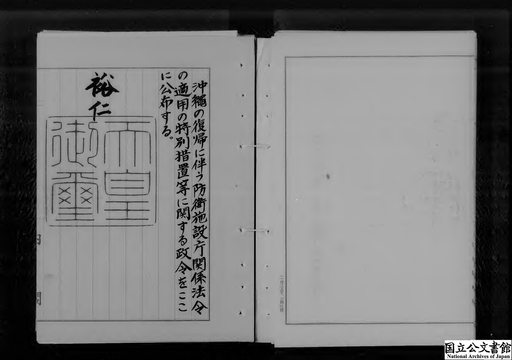 沖縄の復帰に伴う防衛施設庁関係法令
の適用の特別措置等に関する政令をここ
に公布する。
裕仁
天皇
御璽
国立公文書館
National Archives of Japan